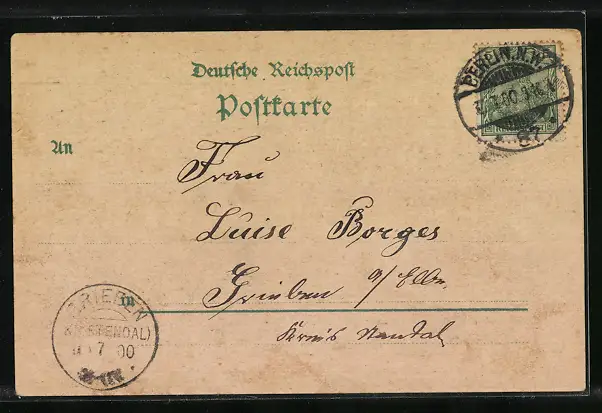 Deutsche Reichspost
Postkarte
BERLIN, N.W.
87
An
Frau
Luise Borges
Grieben a/Elbe.
in
Kreis Stendal
GRIEBEN
(KR. STENDAL)
7 00